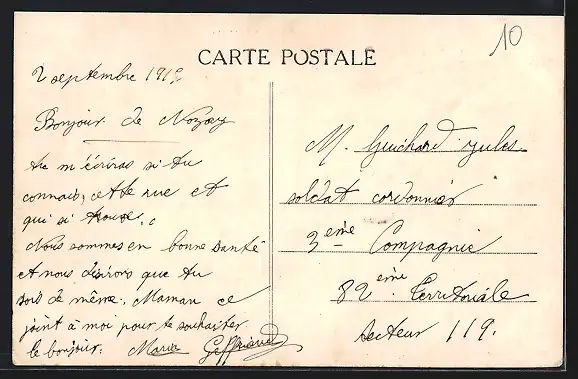 10
CARTE POSTALE
2 septembre 191
Bonjour de Nozay
tu m'écriras si tu
connais, cette rue et
qui si trouve.
Nous sommes en bonne santé
et nous désirons que tu
sois de même, Maman ce
joint à moi pour te souhaiter
le bonjour. Maria Geffriaud
M. Guichard Jules
soldat cordonnier
3eme Compagnie
82 eme territoriale
secteur 119.